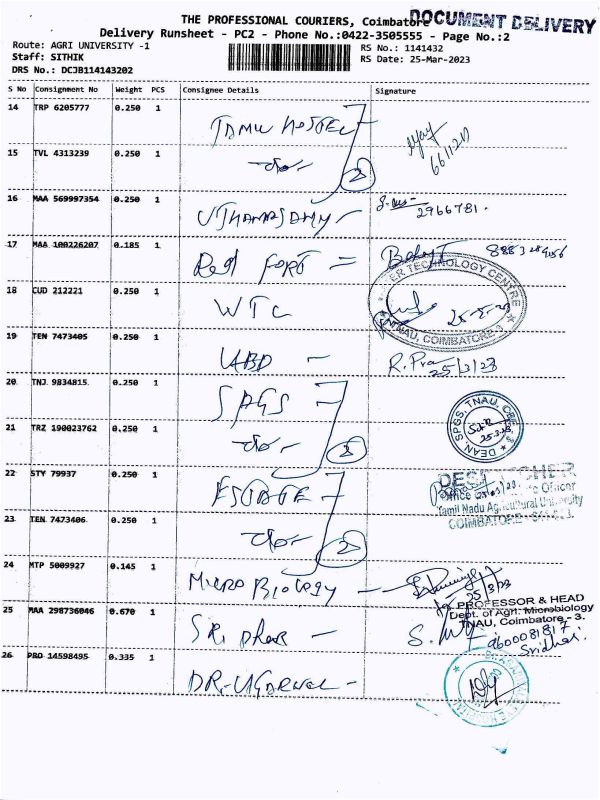 THE PROFESSIONAL COURIERS, Coimbatore
DOCUMENT DELIVERY
Delivery Runsheet - PC2 - Phone No.:0422-3505555 - Page No.:2
Route: AGRI UNIVERSITY -1
RS No.: 1141432
Staff: SITHIK
RS Date: 25-Mar-2023
DRS No.: DCJB114143202
S No Consignment No Weight PCS Consignee Details Signature
14 TRP 6205777 0.250 1 HOSTEL
661120
15 TVL 4313239 0.250 1 2
16 MAA 569997354 0.250 1
2966781.
17 MAA 100226207 0.185 1 Red FORT =
18 CUD 212221 0.250 1 WTC
WATER TECHNOLOGY CENTRE
25-3-23
TNAU, COIMBATORE-3
19 TEN 7473405 0.250 1 UBD -
25/3/23
20 TNJ 9834815 0.250 1 SPGS -
21 TRZ 190023762 0.250 1 2
DEAN SPGS, TNAU, CBE-3
25.3.23
22 STY 79937 0.250 1 ESTATE -
Office Officer
Tamil Nadu Agricultural University
COIMBATORE
23 TEN 7473406 0.250 1 2
24 MTP 5009927 0.145 1 MICRO BIOLOGY -
25/3/23
PROFESSOR & HEAD
Dept. of Agri. Microbiology
TNAU, Coimbatore - 3.
25 MAA 298736046 0.670 1 SRi DHAR -
9600081817
Sridhar
26 PRO 14598495 0.335 1